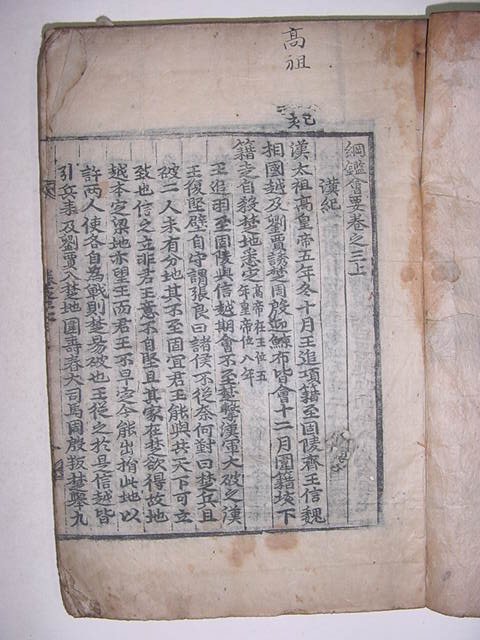 高祖
己亥
綱鑑會要卷之三上
漢紀
漢太祖高皇帝五年冬十月王追項籍至固陵齊王信魏
相國越及劉賈誘楚周殷迎鯨布皆會十二月圍籍垓下
籍走自殺楚地悉定高帝在王位五年皇帝位八年
王追羽至固陵與信越期會不至楚擊漢軍大破之漢
王復堅壁自守謂張良曰諸侯不從奈何對曰楚兵且
破二人未有分地其不至固宜君王能與共天下可立
致也信之立非君王意不自堅且其家在楚欲得故地
越本定梁地亦望王而君王不早定今能出捐此地以
許两人使各自為戰則楚易破也王從之於是信越皆
引兵來及劉賈入楚地圍壽春大司馬周殷叛楚擧九